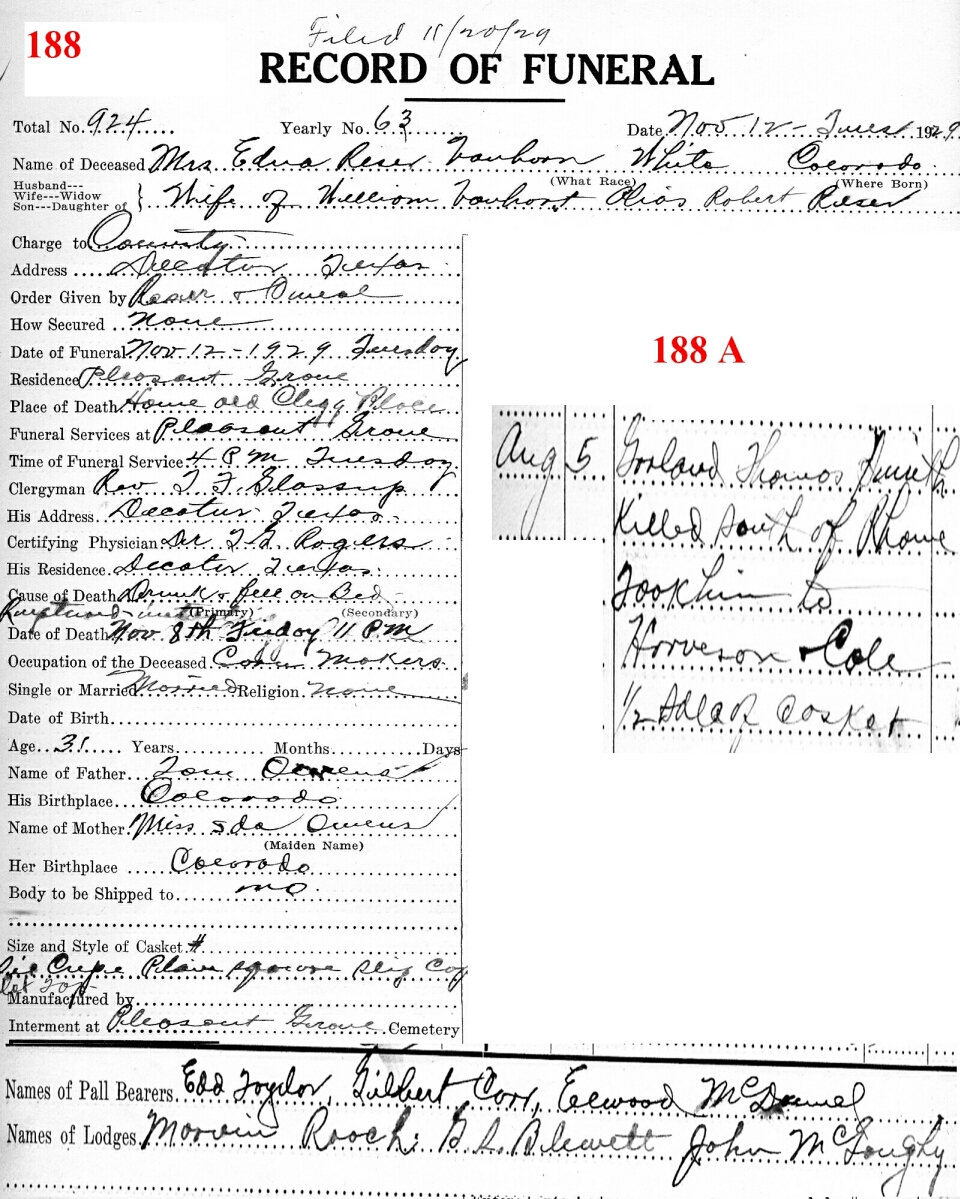 188
Filed 11/20/29
RECORD OF FUNERAL
Total No. 924 Yearly No. 63 Date Nov 12 - Tues 1929
Name of Deceased Mrs Edna Reser Vanhorn White Colorado
(What Race) (Where Born)
Husband---
Wife---Widow
Son---Daughter of } Wife of William Vanhorn Alias Robert Reser
Charge to County
Address Decatur Texas
Order Given by Reser & Oneal
How Secured None
Date of Funeral Nov. 12 - 1929 Tuesday
Residence Pleasant Grove
Place of Death Home old Clegg Place
Funeral Services at Pleasant Grove
Time of Funeral Service 4 P M Tuesday
Clergyman Rev T F Glassup
His Address Decatur Texas
Certifying Physician Dr Rogers
His Residence Decatur Texas
Cause of Death Drunk & fell on Bed
Ruptured
(Primary) (Secondary)
Date of Death Nov 8th Friday 11 P M
Occupation of the Deceased Makers
Single or Married Married Religion None
Date of Birth
Age 31 Years Months Days
Name of Father Tom Owens
His Birthplace Colorado
Name of Mother Miss Ida Owens
(Maiden Name)
Her Birthplace Colorado
Body to be Shipped to no
Size and Style of Casket #
Crepe Plain square slip cap
top
Manufactured by
Interment at Pleasant Grove Cemetery
188 A
Aug 5 Garland Thomas Smith
Killed South of Rhome
Took him to
Harveson & Cole
1/2 Casket
Names of Pall Bearers Edd Taylor, Gilbert Carr, Elwood McDaniel
Names of Lodges Marvin Roach, Blewett John